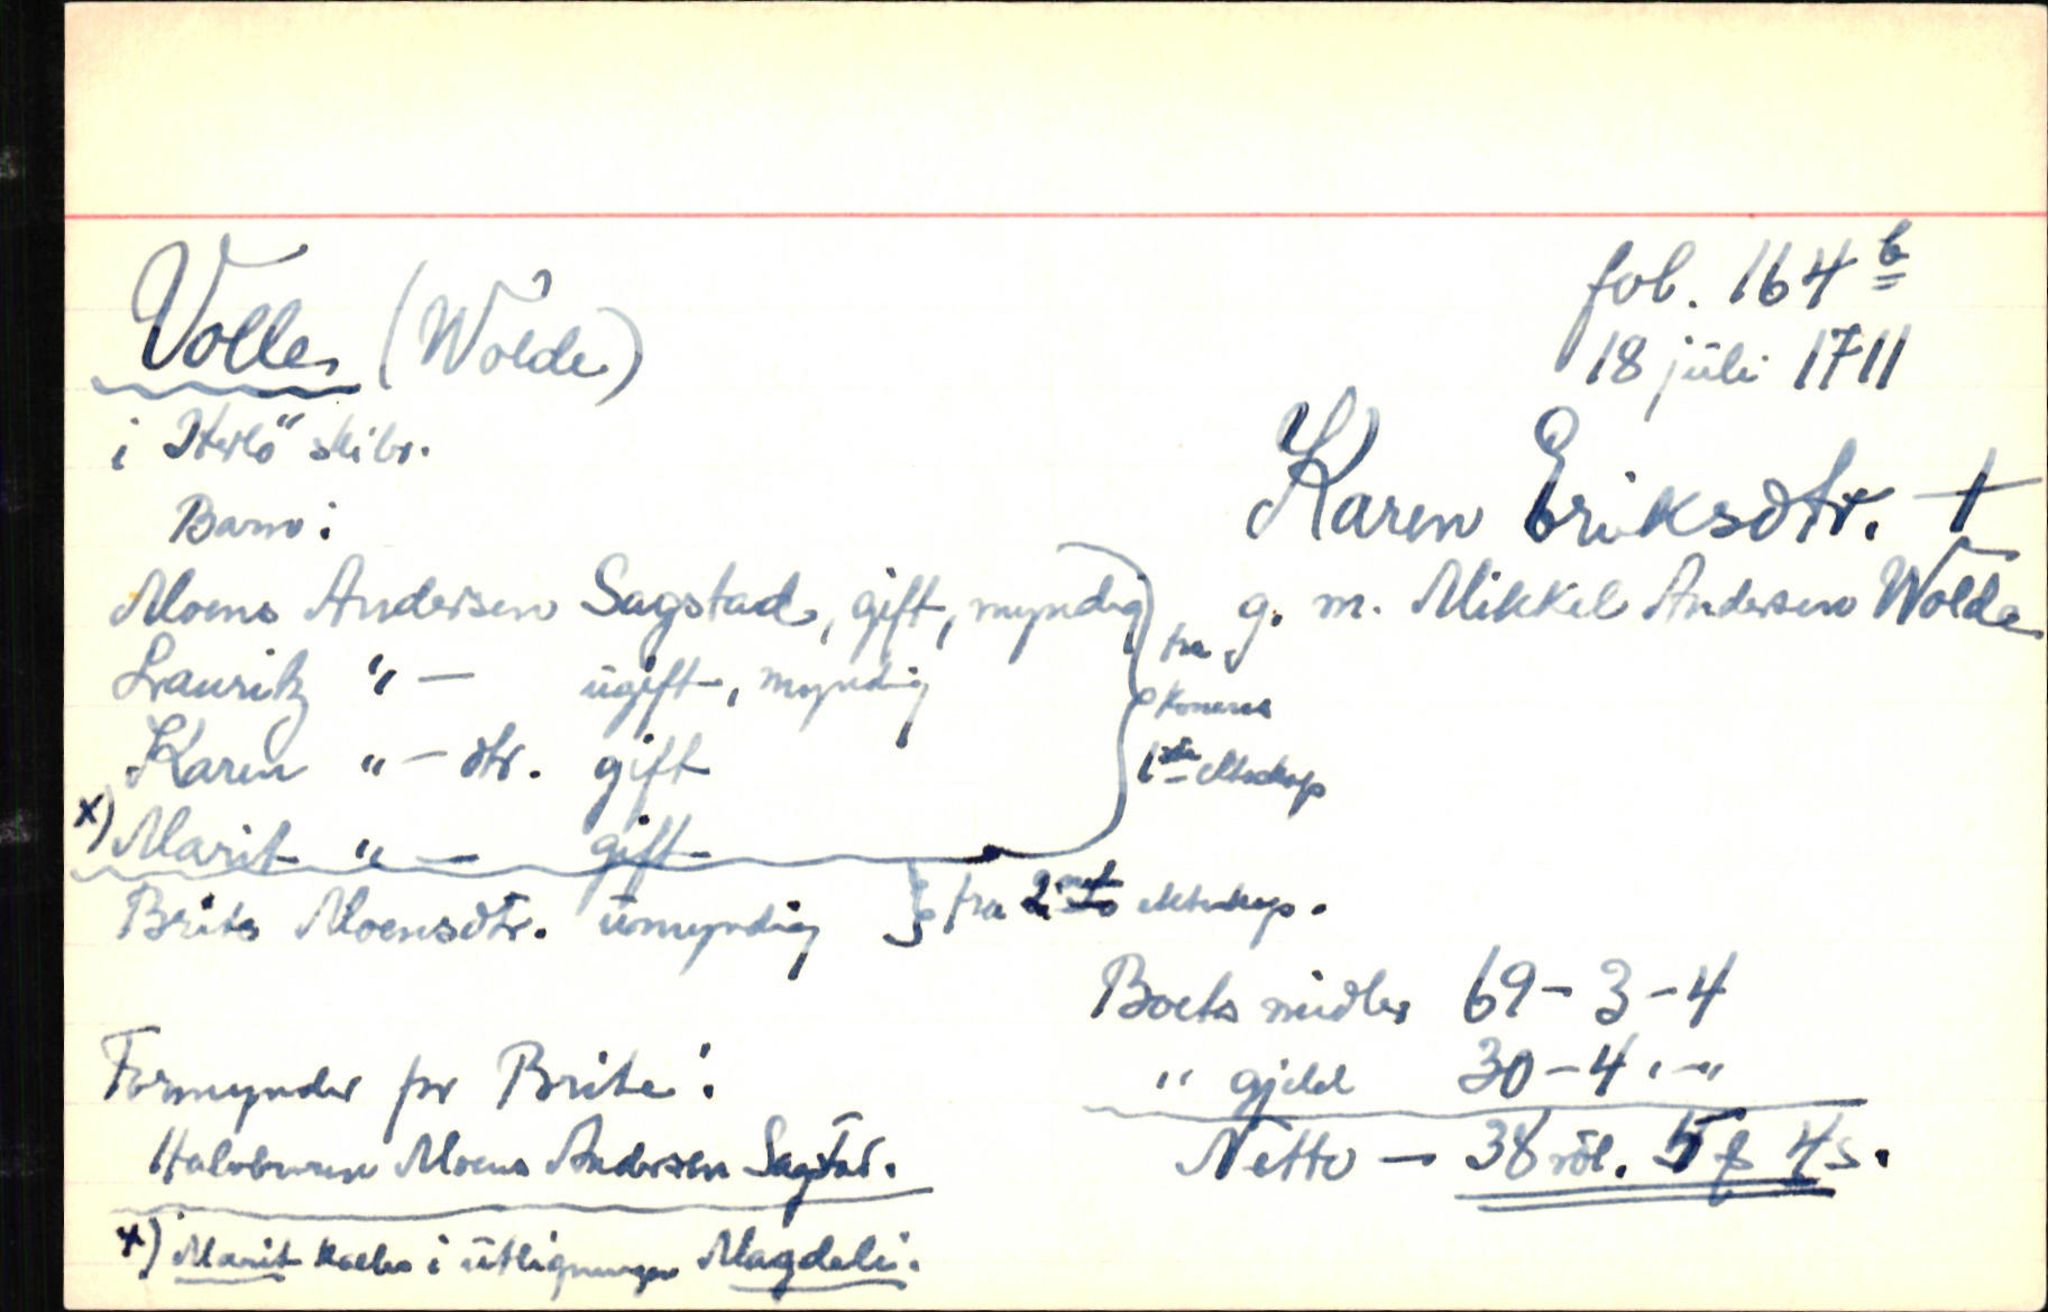 Volle (Wolde)
fol. 164 b
18 juli 1711
i Herlö skibr.
Karen Eriksdtr. †
g. m. Mikkel Andersen Wolde
Barn:
Moens Andersen Sagstad, gift, myndig
Lauritz " — ugift, myndig
Karen " — dtr. gift
x) Marit " — gift
fra
konens
1ste ektskap
Brite Moensdtr. umyndig } fra 2net ektskap.
Boets midler 69 - 3 - 4
" gjeld 30 - 4 " - "
Netto — 38 rdl. 5 ƒ 4 s.
Formynder for Brite:
Halvbroren Moens Andersen Sagstad.
x) Marit kaldes i utligningen Magdeli.